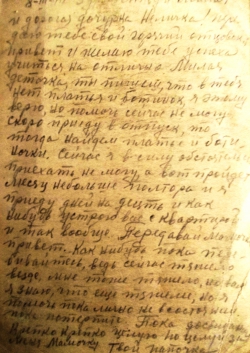 и дорогая дочурка Нелличка! Пере
даю тебе свой горячий отцовский
привет и желаю тебе успеха
учиться на отлично. Милая
деточка, ты пишешь, что в тебя
нет платья и ботинок, я этому
верю. Но помочь сейчас не могу
скоро приеду в отпуск, то
тогда найдем платье и боти
ночки. Сейчас я в силу обстоятель
приехать не могу, а вот пройдет
месяц небольше полтора и я
приеду дней на десять и как
нибудь устрою вас с квартирой
и так вообще. Передавай мамочке
привет. Как нибудь пока пере
бивайтесь, ведь сейчас тяжело
везде, мне тоже тяжело, но вам
я знаю, что еще тяжелее. Но я
помочь пока лично не в состоянии
пока потерпите. Пока досвидан
Крепко крепко целую
мамочку Твой папочка